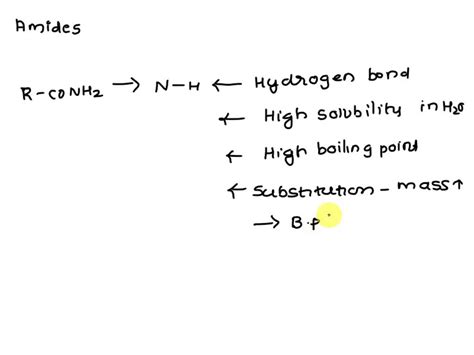 Amides
R-CONH2 → N-H ← Hydrogen bond
← High solubility in H2O
← High boiling point
← Substitution - mass↑
→ B.p